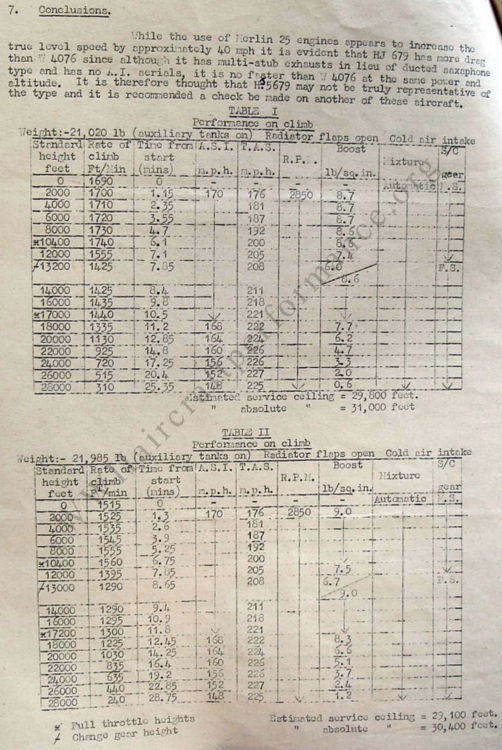 7. Conclusions.
While the use of Merlin 25 engines appears to increase the
true level speed by approximately 40 mph it is evident that HJ 679 has more drag
than W 4076 since although it has multi-stub exhausts in lieu of ducted saxaphone
type and has no A.I. aerials, it is no faster than W 4076 at the same power and
altitude. It is therefore thought that HJ 679 may not be truly representative of
the type and it is recommended a check be made on another of these aircraft.
TABLE I
Performance on climb
Weight:-21,020 lb (auxiliary tanks on) Radiator flaps open Cold air intake
Standard Rate of Time from A.S.I. T.A.S. Boost S/C
height climb start R.P.M. Mixture
feet Ft/Min (mins) m.p.h. m.p.h. lb/sq.in. gear
0 1690 0 - - - Automatic M.S.
2000 1700 1.15 170 176 2850 8.7
4000 1710 2.35 181 8.7
6000 1720 3.55 187 8.7
8000 1730 4.7 192 8.6
*10400 1740 6.1 200 8.6
12000 1555 7.1 205 7.4
/13200 1425 7.85 208 6.0 F.S.
8.6
14000 1425 8.4 211
16000 1435 9.8 218
*17000 1440 10.5 221
18000 1335 11.2 168 222 7.7
20000 1130 12.85 164 224 6.2
22000 925 14.8 160 226 4.7
24000 720 17.25 156 226 3.3
26000 515 20.4 152 227 2.0
28000 310 25.35 148 225 0.6
Estimated service ceiling = 29,800 feet.
" absolute " = 31,000 feet
TABLE II
Performance on climb
Weight:- 21,985 lb (auxiliary tanks on) Radiator flaps open Cold air intake
Standard Rate of Time from A.S.I. T.A.S. Boost S/C
height climb start R.P.M. Mixture
feet Ft/min (mins) m.p.h. m.p.h. lb/sq.in. gear
0 1515 0 - - - Automatic M.S.
2000 1525 1.3 170 176 2850 9.0
4000 1535 2.6 181
6000 1545 3.9 187
8000 1555 5.25 192
*10400 1560 6.75 200
12000 1395 7.85 205 7.5
/13000 1290 8.65 208 6.7 F.S.
9.0
14000 1290 9.4 211
16000 1295 10.9 218
*17200 1300 11.8 221
18000 1225 12.45 168 222 8.3
20000 1030 14.25 164 224 6.6
22000 835 16.4 160 226 5.1
24000 635 19.2 156 226 3.7
26000 440 22.85 152 227 2.4
28000 240 28.75 148 225 1.2
* Full throttle heights Estimated service ceiling = 29,100 feet.
/ Change gear height " absolute " = 30,400 feet.
www.aircraftperformance.org